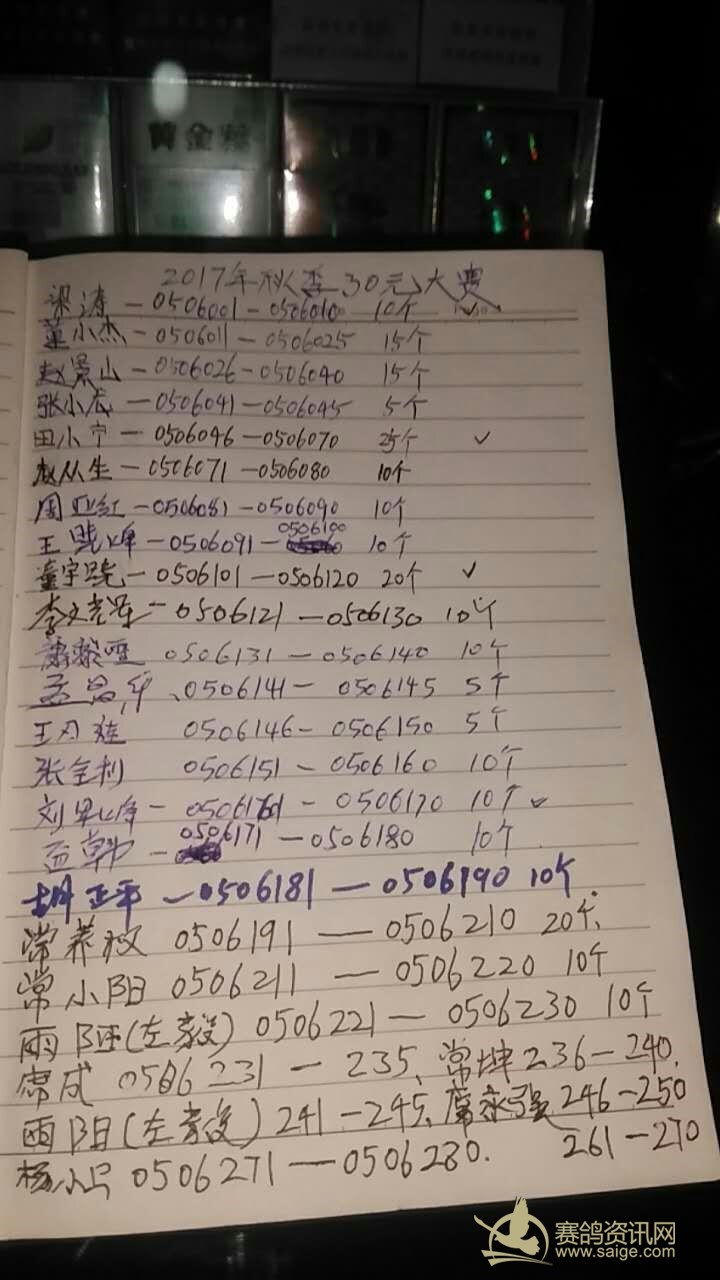 黄金叶
2017年秋季30元大赛
梁涛—0506001—0506010 10个 ✓
董小杰—0506011—0506025 15个
赵景山—0506026—0506040 15个
张小宏—0506041—0506045 5个
田小宁—0506046—0506070 25个 ✓
赵从生—0506071—0506080 10个
周亚红—0506081—0506090 10个
王晓峰—0506091—0506100 10个
董宇晓—0506101—0506120 20个 ✓
李文 0506121—0506130 10个
0506131—0506140 10个
孟昌 0506141—0506145 5个
王 0506146—0506150 5个
张全利 0506151—0506160 10个
刘 峰—0506161—0506170 10个 ✓
孟 —0506171—0506180 10个
胡正平—0506181—0506190 10个
常养 0506191—0506210 20个
常小阳 0506211—0506220 10个
雨阳(左毅) 0506221—0506230 10个
席成 0506231—235、常坤236—240.
雨阳(左毅)241—245、席永强246—250
杨小 0506271—0506280. 261—270
赛鸽资讯网
www.saige.com